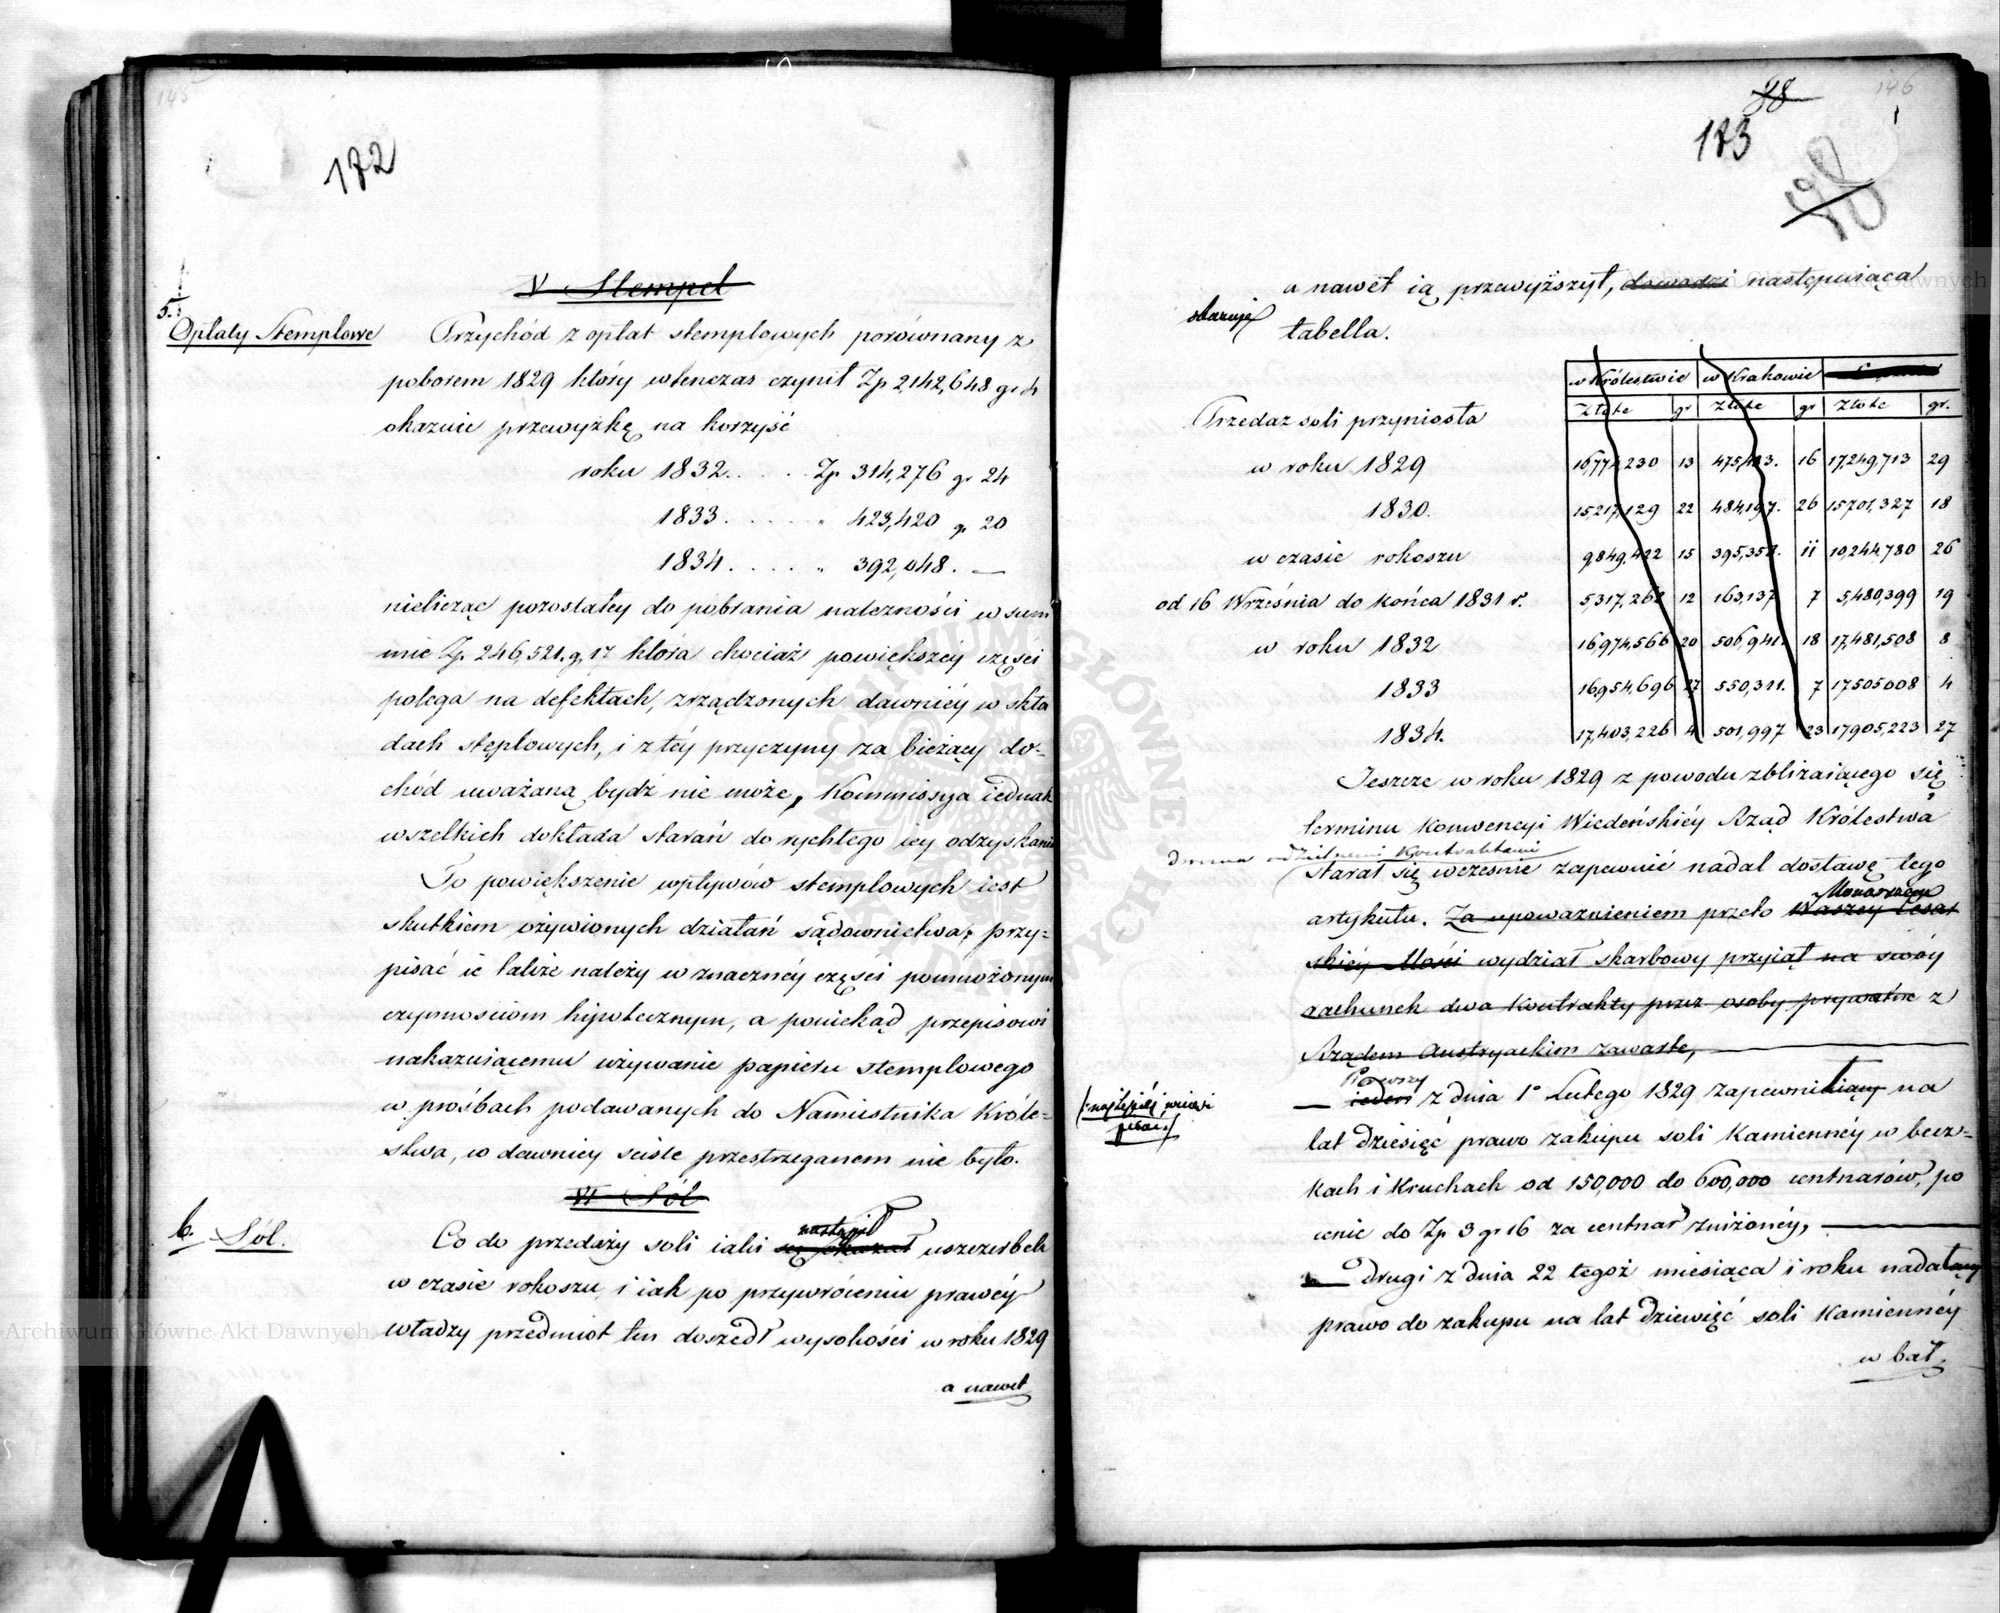 145
172
V Stempel
5.
Opłaty Stemplowe
Przychód z opłat stemplowych porównany z
poborem 1829 który wtenczas czynił Zp 2,142,648 gr 4
okazuie przewyżkę na korzyść
roku 1832. . . . . Zp 314,276 gr 24
1833. . . . . " 423,420 gr 20
1834. . . . . " 392,048. —
nielicząc pozostałey do pobrania należności w sum
mie Zp. 246,521. g. 17 która chociaż powiększéy części
polega na defektach, zrządzonych dawniéy w skła
dach stęplowych, i z téy przyczyny za bieżący do-
chód uważaną bydź nie może, Kommissya iednak
wszelkich dokłada starań do rychłego iéy odzyskania
To powiększenie wpływów stemplowych iest
skutkiem ożywionych działań sądownictwa, przy=
pisać ie także należy w znacznéy części pomnożonym
czynnościom hipotecznym, a poniekąd przepisowi
nakazuiącemu używanie papieru stemplowego
w prośbach podawanych do Namiestnika Króle=
stwa, co dawniey ściśle przestrzeganem nie było.
VI Sól
6. Sól.
nastąpił
Co do przedaży soli iaki się okazał uszczerbek
w czasie rokoszu, i iak po przywróceniu prawéy
władzy przedmiot ten doszedł wysokości w roku 1829
a nawet
146
98
173
98
a nawet ią przewyższył, dowodzi następuiąca
okazuie
tabella.
w Królestwie w Krakowie
Złote gr Złote gr Złote gr.
Przedaż soli przyniosła
w roku 1829 16,774,230 13 475,483. 16 17,249,713 29
1830. 15,217,129 22 484,197. 26 15,701,327 18
w czasie rokoszu 9,849,422 15 395,358. 11 10,244,780 26
od 16 Września do końca 1831 r. 5,317,262 12 163,137 7 5,480,399 19
w roku 1832 16,974,566 20 506,941. 18 17,481,508 8
1833 16,954,696 27 550,311. 7 17,505,008 4
1834. 17,403,226 4 501,997 23 17,905,223 27
Jeszcze w roku 1829 z powodu zbliżaiącego się
terminu Konwencyi Wiedeńskiéy Rząd Królestwa
dwoma oddzielnemi Kontraktami
starał się wcześnie zapewnić nadal dostawę tego
Monarszem
artykułu. Za upoważnieniem przeto Waszey Cesar
skiéy Mości wydział skarbowy przyiął na swóy
rachunek dwa Kontrakty przez osoby prywatne z
Rządem Austryackim zawarte,
Pierwszy
ieden z dnia 1° Lutego 1829 zapewniaiący na
lat dziesięć prawo zakupu soli Kamiennéy w becz=
kach i Kruchach od 150,000 do 600,000 centnarów, po
cenie do Zp 3 gr 16 za centnar zniżonéy,
drugi z dnia 22 tegoż miesiąca i roku nadaiący
prawo do zakupu na lat dziewięć soli Kamiennéy
w bał
Archiwum Główne Akt Dawnych
ARCHIWUM GŁÓWNE AKT DAWNYCH